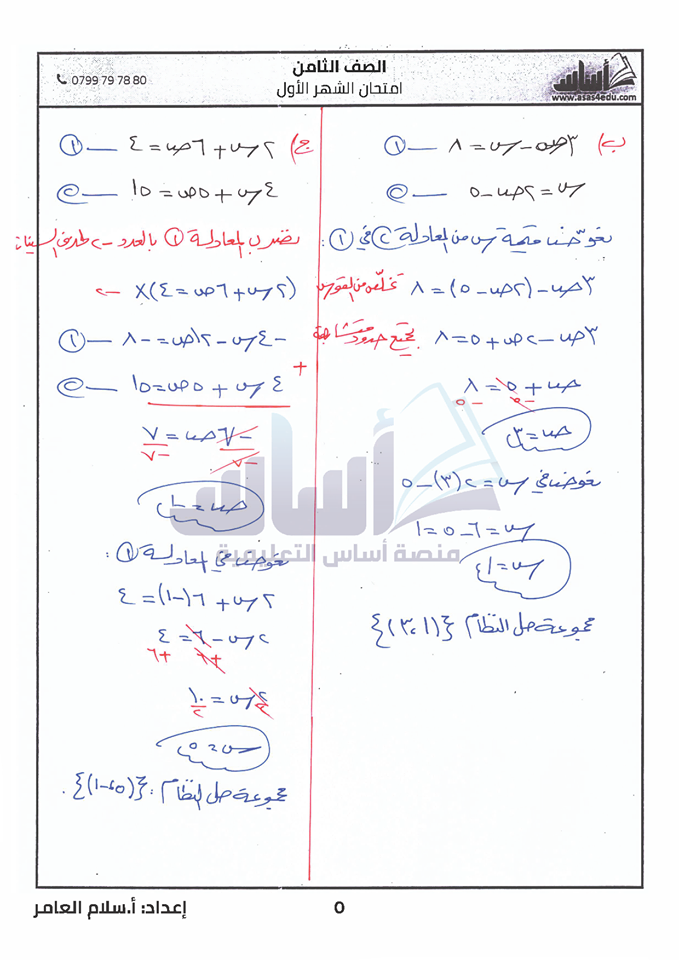 أساس
www.asas4edu.com
الصف الثامن
امتحان الشهر الأول
0799 79 78 80
ب) ٣ص - س = ٨ — ①
س = ٢ص - ٥ — ②
نعوّض قيمة س من المعادلة ② في ① :
٣ص - (٢ص - ٥) = ٨ تخلّص من القوس
٣ص - ٢ص + ٥ = ٨ بجمع حدود متشابهة
ص + ٥ = ٨
-٥ -٥
ص = ٣
نعوض في س = ٢(٣) - ٥
س = ٦ - ٥ = ١
س = ١
مجموعة حل النظام {(١، ٣)}
ج) ٢س + ٦ص = ٤ — ①
٤س + ٥ص = ١٥ — ②
نضرب المعادلة ① بالعدد -٢ لحذف السينات
(٢س + ٦ص = ٤)× -٢
-٤س - ١٢ص = -٨ — ①
+
٤س + ٥ص = ١٥ — ②
-٧ص = ٧
-٧ -٧
ص = -١
نعوض في المعادلة ① :
٢س + ٦(-١) = ٤
٢س - ٦ = ٤
+٦ +٦
٢س = ١٠
٢ ٢
س = ٥
مجموعة حل النظام : {(٥، -١)}.
أساس
منصة أساس التعليمية
إعداد: أ.سلام العامر
٥